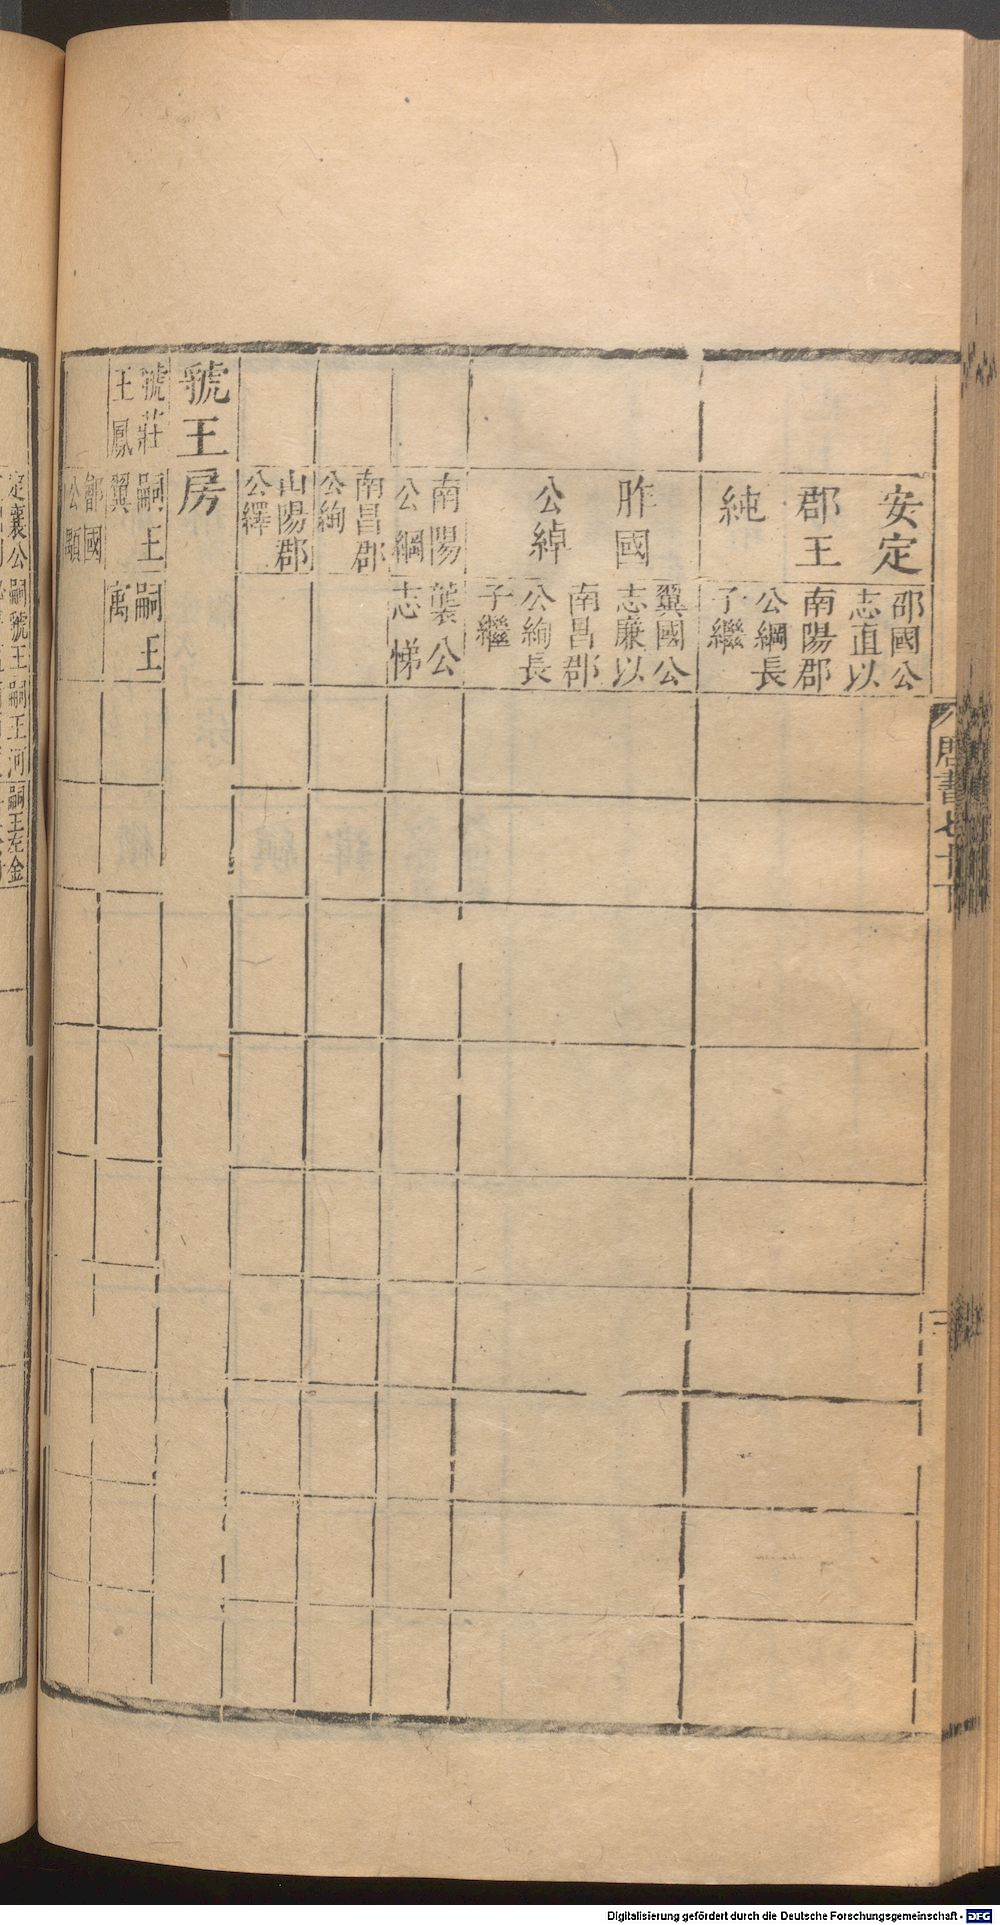 安定
郡王
純
邵國公
志直以
南陽郡
公綱長
子繼
胙國
公綽
翼國公
志廉以
南昌郡
公絢長
子繼
南陽
公綱
葉公
志悌
南昌郡
公絢
山陽郡
公繹
虢王房
虢莊
王鳳
嗣王
翼
嗣王
寓
國
公
唐書七十下
定襄公
嗣虢王
嗣王河
嗣王左金
Digitalisierung gefördert durch die Deutsche Forschungsgemeinschaft - DFG